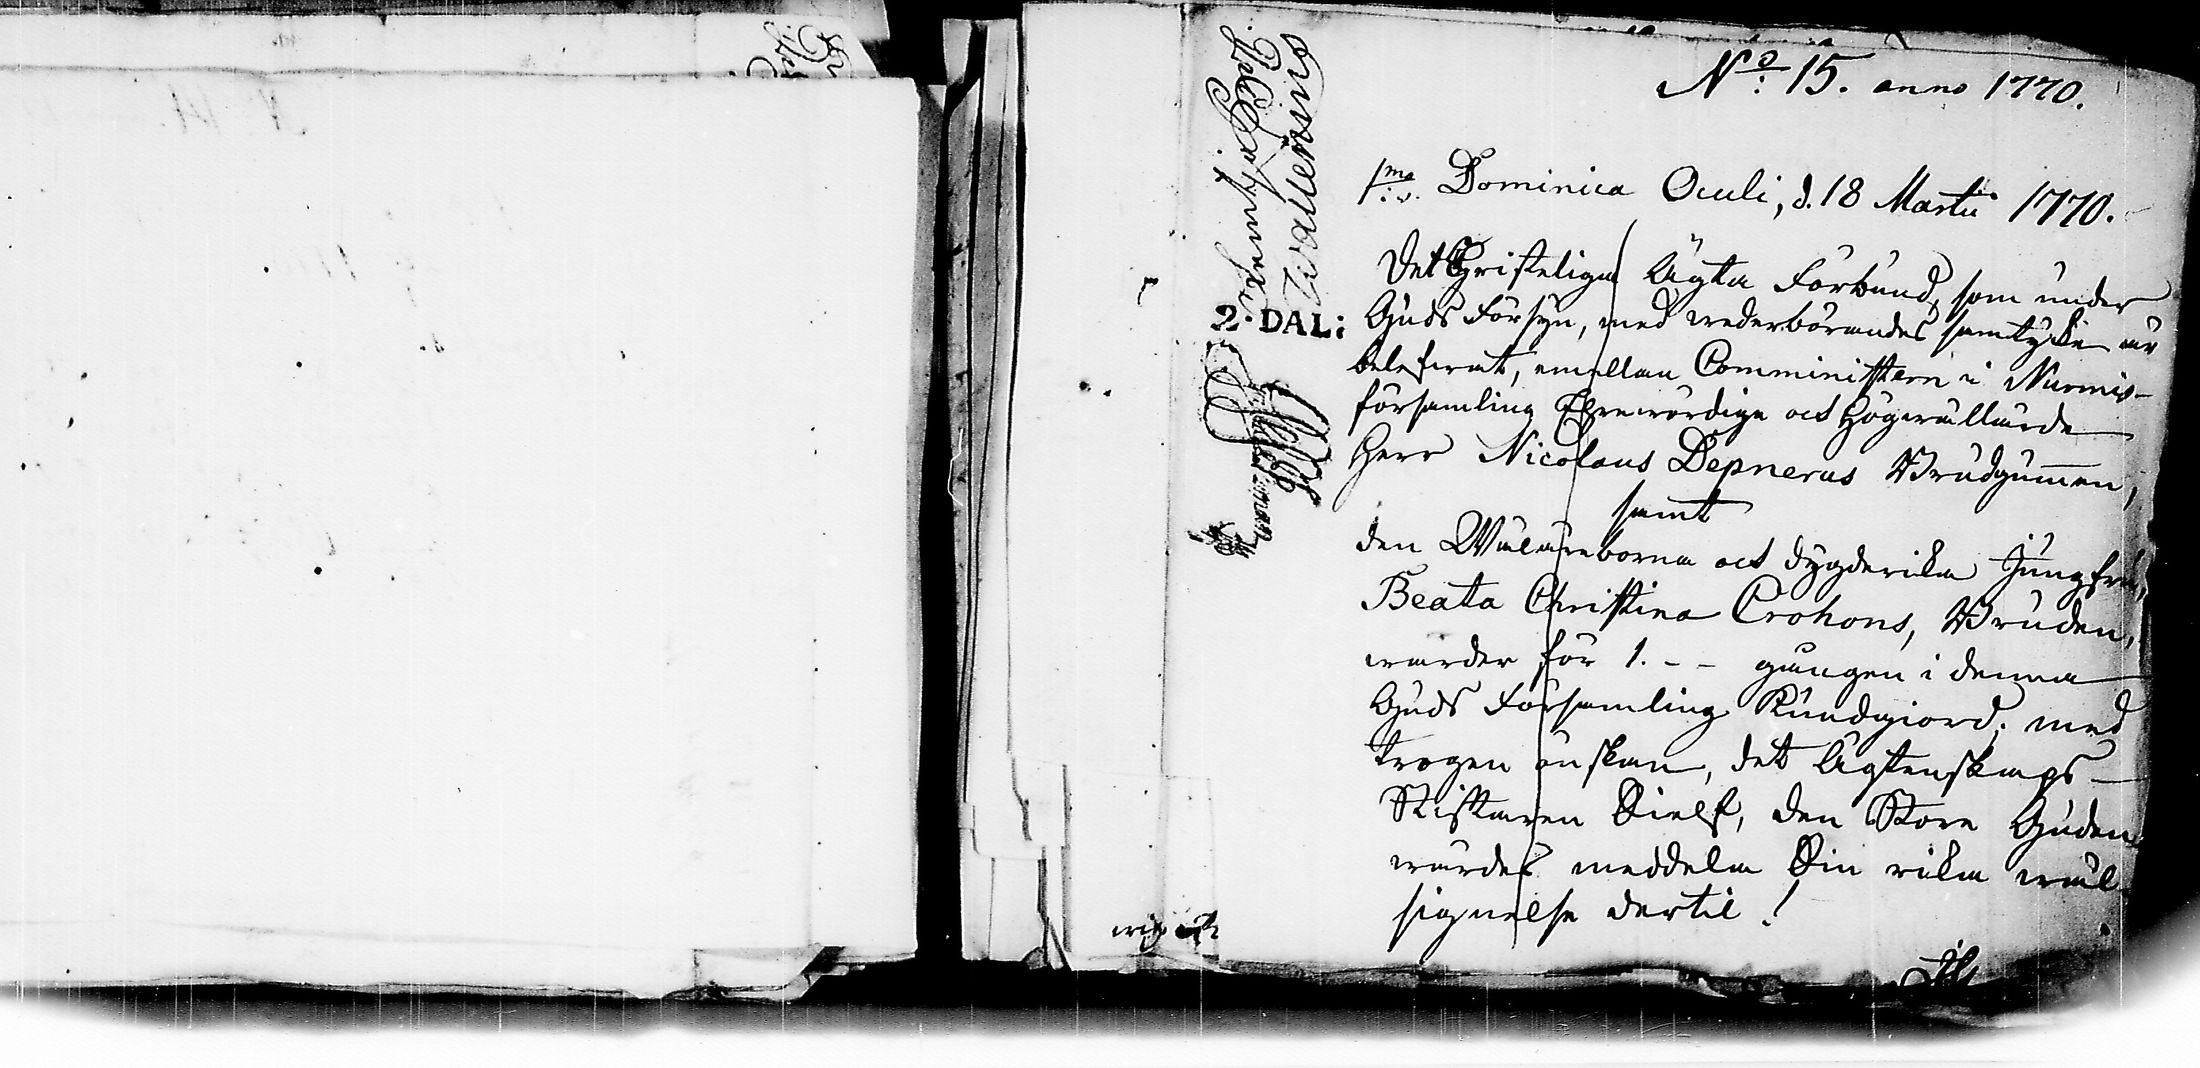 No: 15. anno 1770.
1mo. Dominica Oculi, d. 18 Martii 1770.
Det Christeliga Ägta Förbund, som under
Guds Försyn, med wederbörandes samtycke är
beleswat, emellan Comministern i Nurmis-
församling Ehrewördige och Högwällärde
Herr Nicolaus Depnerus Brudgummen,
samt
den Wäläreborna och dygderika Jungfru,
Beata Christina Crohons, Bruden,
warder för 1. - - gången i denna
Guds Församling Kundgiord; med
trogen önskan, det Ägtenskaps-
Stiftaren Sielf, den Store Guden
wärdes meddela Sin rika wäl-
signelse dertil!
2. DAL: